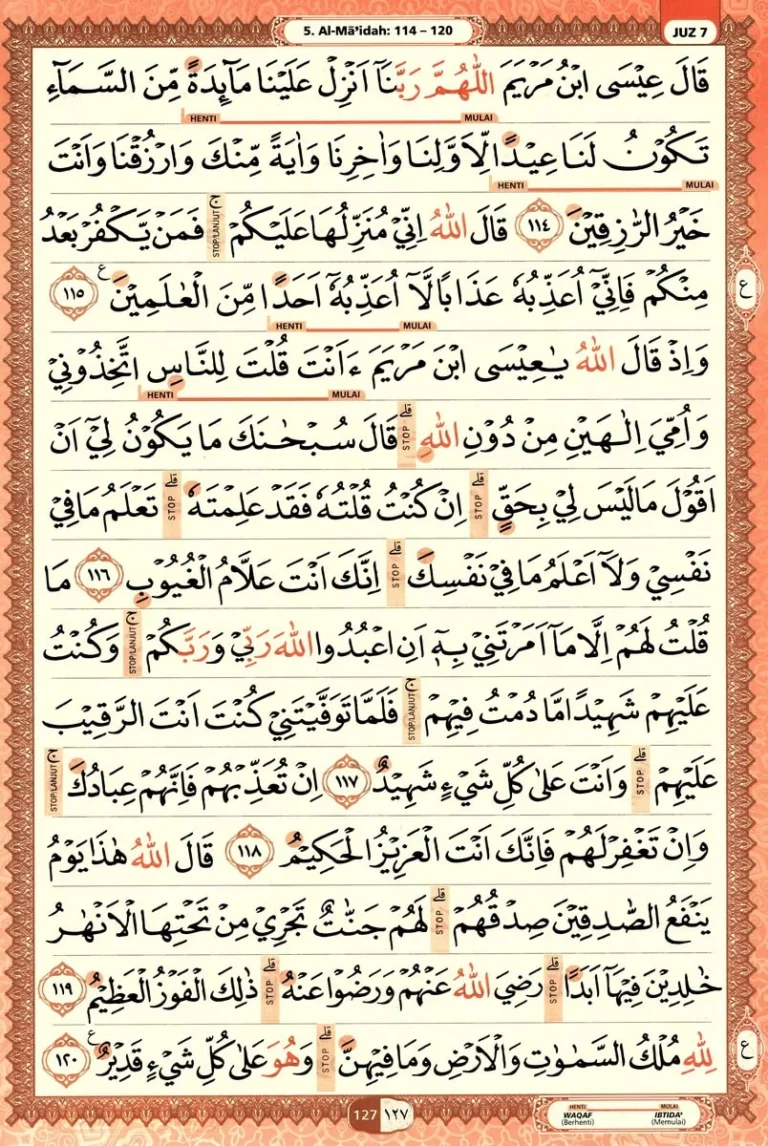 5. Al-Mā'idah: 114 – 120
JUZ 7
قَالَ عِيْسَى ابْنُ مَرْيَمَ اللّٰهُمَّ رَبَّنَآ اَنْزِلْ عَلَيْنَا مَآىِٕدَةً مِّنَ السَّمَاۤءِ
HENTI MULAI
تَكُوْنُ لَنَا عِيْدًا لِّاَوَّلِنَا وَاٰخِرِنَا وَاٰيَةً مِّنْكَ وَارْزُقْنَا وَاَنْتَ
HENTI MULAI
خَيْرُ الرّٰزِقِيْنَ ١١٤ قَالَ اللّٰهُ اِنِّيْ مُنَزِّلُهَا عَلَيْكُمْ ۚ STOP/LANJUT فَمَنْ يَّكْفُرْ بَعْدُ
مِنْكُمْ فَاِنِّيْٓ اُعَذِّبُهٗ عَذَابًا لَّآ اُعَذِّبُهٗٓ اَحَدًا مِّنَ الْعٰلَمِيْنَ ࣖ ١١٥
ع
HENTI MULAI
وَاِذْ قَالَ اللّٰهُ يٰعِيْسَى ابْنَ مَرْيَمَ ءَاَنْتَ قُلْتَ لِلنَّاسِ اتَّخِذُوْنِيْ
HENTI MULAI
وَاُمِّيَ اِلٰهَيْنِ مِنْ دُوْنِ اللّٰهِ ۗ STOP قَالَ سُبْحٰنَكَ مَا يَكُوْنُ لِيْٓ اَنْ
اَقُوْلَ مَا لَيْسَ لِيْ بِحَقٍّ ۗ STOP اِنْ كُنْتُ قُلْتُهٗ فَقَدْ عَلِمْتَهٗ ۗ STOP تَعْلَمُ مَا فِيْ
نَفْسِيْ وَلَآ اَعْلَمُ مَا فِيْ نَفْسِكَ ۗ STOP اِنَّكَ اَنْتَ عَلَّامُ الْغُيُوْبِ ١١٦ مَا
قُلْتُ لَهُمْ اِلَّا مَآ اَمَرْتَنِيْ بِهٖٓ اَنِ اعْبُدُوا اللّٰهَ رَبِّيْ وَرَبَّكُمْ ۚ STOP/LANJUT وَكُنْتُ
عَلَيْهِمْ شَهِيْدًا مَّا دُمْتُ فِيْهِمْ ۚ STOP/LANJUT فَلَمَّا تَوَفَّيْتَنِيْ كُنْتَ اَنْتَ الرَّقِيْبَ
عَلَيْهِمْ ۗ STOP وَاَنْتَ عَلٰى كُلِّ شَيْءٍ شَهِيْدٌ ١١٧ اِنْ تُعَذِّبْهُمْ فَاِنَّهُمْ عِبَادُكَ ۚ STOP/LANJUT
وَاِنْ تَغْفِرْ لَهُمْ فَاِنَّكَ اَنْتَ الْعَزِيْزُ الْحَكِيْمُ ١١٨ قَالَ اللّٰهُ هٰذَا يَوْمُ
يَنْفَعُ الصّٰدِقِيْنَ صِدْقُهُمْ ۗ STOP لَهُمْ جَنّٰتٌ تَجْرِيْ مِنْ تَحْتِهَا الْاَنْهٰرُ
خٰلِدِيْنَ فِيْهَآ اَبَدًا ۗ STOP رَضِيَ اللّٰهُ عَنْهُمْ وَرَضُوْا عَنْهُ ۗ STOP ذٰلِكَ الْفَوْزُ الْعَظِيْمُ ١١٩
لِلّٰهِ مُلْكُ السَّمٰوٰتِ وَالْاَرْضِ وَمَا فِيْهِنَّ ۗ STOP وَهُوَ عَلٰى كُلِّ شَيْءٍ قَدِيْرٌ ࣖ ١٢٠
ع
127 ١٢٧
HENTI MULAI
WAQAF IBTIDA'
(Berhenti) (Memulai)